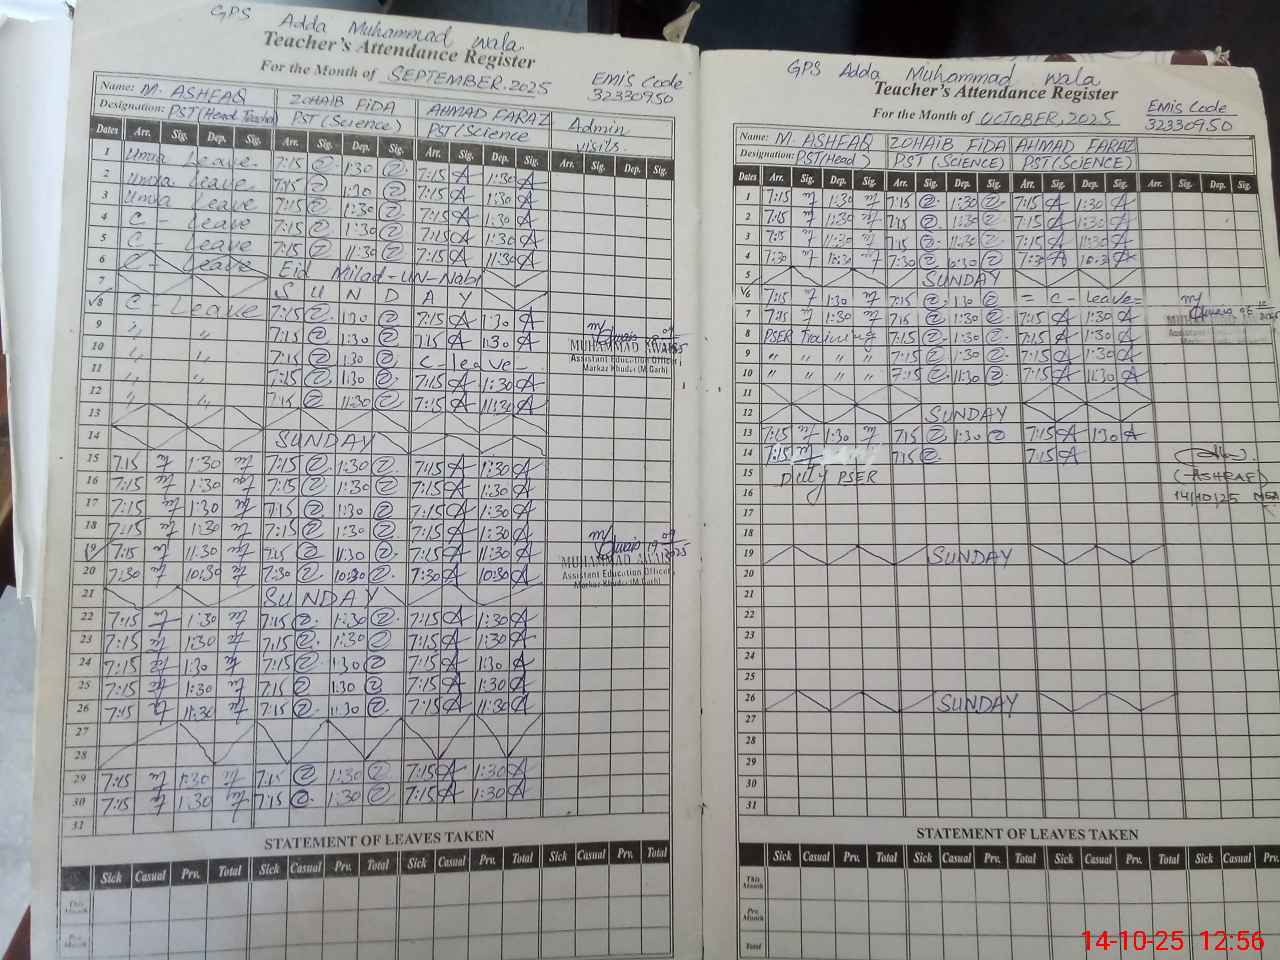 GPS Adda Muhammad wala
Teacher's Attendance Register
For the Month of SEPTEMBER, 2025
EMIS Code
32330950
Name: M. ASHFAQ ZOHAIB FIDA AHMAD FARAZ Admin
Designation: PST (Head Teacher) PST (Science) PST (Science visits.
Dates Arr. Sig. Dep. Sig. Arr. Sig. Dep. Sig. Arr. Sig. Dep. Sig. Arr. Sig. Dep. Sig.
1 Umra Leave 7:15 1:30 7:15 A 1:30 A
2 Umra Leave 7:15 1:30 7:15 A 1:30 A
3 Umra Leave 7:15 1:30 7:15 A 1:30 A
4 C - Leave 7:15 1:30 7:15 A 1:30 A
5 C - Leave 7:15 11:30 7:15 A 11:30 A
6 C - Leave Eid Milad-UN-Nabi
7 S U N D A Y
8 C - Leave 7:15 1:30 7:15 A 1:30 A
9 " " 7:15 1:30 7:15 A 1:30 A
10 " " 7:15 1:30 C - leave -
11 " " 7:15 1:30 7:15 A 1:30 A
12 " " 7:15 11:30 7:15 A 11:30 A
MUHAMMAD AWAIS
Assistant Education Officer
Markaz Khudai (M.Garh)
13
14 SUNDAY
15 7:15 1:30 7:15 1:30 7:15 A 1:30 A
16 7:15 1:30 7:15 1:30 7:15 A 1:30 A
17 7:15 1:30 7:15 1:30 7:15 A 1:30 A
18 7:15 1:30 7:15 1:30 7:15 A 1:30 A
19 7:15 11:30 7:15 11:30 7:15 A 11:30 A
20 7:30 10:30 7:30 10:30 7:30 A 10:30 A
MUHAMMAD AWAIS
Assistant Education Officer
Markaz Khudai (M.Garh)
21 SUNDAY
22 7:15 1:30 7:15 1:30 7:15 A 1:30 A
23 7:15 1:30 7:15 1:30 7:15 A 1:30 A
24 7:15 1:30 7:15 1:30 7:15 A 1:30 A
25 7:15 1:30 7:15 1:30 7:15 A 1:30 A
26 7:15 11:30 7:15 11:30 7:15 A 11:30 A
27
28
29 7:15 1:30 7:15 1:30 7:15 A 1:30 A
30 7:15 1:30 7:15 1:30 7:15 A 1:30 A
31
STATEMENT OF LEAVES TAKEN
Sick Casual Prv. Total Sick Casual Prv. Total Sick Casual Prv. Total Sick Casual Prv. Total
This Month
Pre Month
GPS Adda Muhammad wala
Teacher's Attendance Register
For the Month of OCTOBER, 2025
EMIS Code
32330950
Name: M. ASHFAQ ZOHAIB FIDA AHMAD FARAZ
Designation: PST (Head ) PST (SCIENCE) PST (SCIENCE)
Dates Arr. Sig. Dep. Sig. Arr. Sig. Dep. Sig. Arr. Sig. Dep. Sig. Arr. Sig. Dep. Sig.
1 7:15 1:30 7:15 1:30 7:15 A 1:30 A
2 7:15 1:30 7:15 1:30 7:15 A 1:30 A
3 7:15 11:30 7:15 11:30 7:15 A 11:30 A
4 7:30 10:30 7:30 10:30 7:30 A 10:30 A
5 SUNDAY
6 7:15 1:30 7:15 1:30 = C - Leave =
7 7:15 1:30 7:15 1:30 7:15 A 1:30 A
8 PSER Training 7:15 1:30 7:15 A 1:30 A
9 " " " " 7:15 1:30 7:15 A 1:30 A
10 " " " " 7:15 11:30 7:15 A 11:30 A
11
12 SUNDAY
13 7:15 1:30 7:15 1:30 7:15 A 1:30 A
14 7:15 7:15 7:15 A
15 Duty PSER
(ASHRAF)
14/10/25 MEA
16
17
18
19 SUNDAY
20
21
22
23
24
25
26 SUNDAY
27
28
29
30
31
STATEMENT OF LEAVES TAKEN
Sick Casual Prv. Total Sick Casual Prv. Total Sick Casual Prv. Total Sick Casual Prv.
This Month
Pre Month
Total
14-10-25 12:56